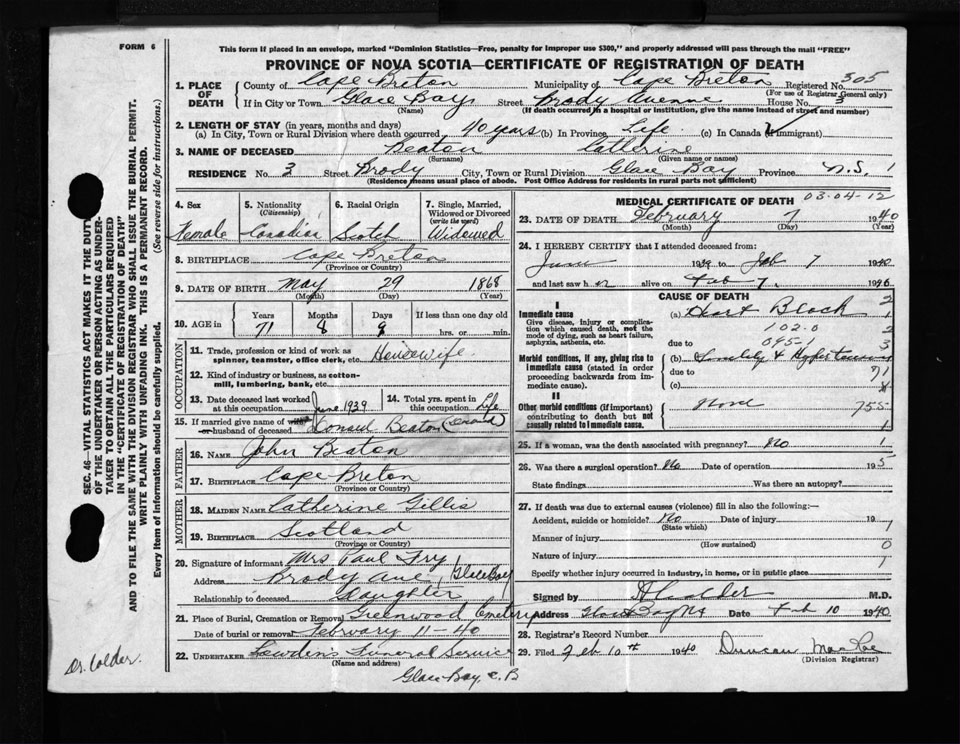 FORM 6
This form if placed in an envelope, marked "Dominion Statistics—Free, penalty for improper use $300," and properly addressed will pass through the mail "FREE"
PROVINCE OF NOVA SCOTIA—CERTIFICATE OF REGISTRATION OF DEATH
1. PLACE OF DEATH
County of Cape Breton Municipality of Cape Breton Registered No. 305
(For use of Registrar General only)
If in City or Town Glace Bay Street Brody Avenue House No. 3
(Name) (If death occurred in a hospital or institution, give the name instead of street and number)
2. LENGTH OF STAY (in years, months and days)
(a) In City, Town or Rural Division where death occurred 40 years (b) In Province Life (c) In Canada (if immigrant)
3. NAME OF DECEASED Beaton Catherine
(Surname) (Given name or names)
RESIDENCE No. 3 Street Brody City, Town or Rural Division Glace Bay Province N.S. 1
(Residence means usual place of abode. Post Office Address for residents in rural parts not sufficient)
4. Sex Female
5. Nationality (Citizenship) Canadian
6. Racial Origin Scotch
7. Single, Married, Widowed or Divorced (write the word) Widowed
8. BIRTHPLACE Cape Breton
(Province or Country)
9. DATE OF BIRTH May 29 1868
(Month) (Day) (Year)
10. AGE in Years Months Days If less than one day old
71 8 9 hrs. or min.
OCCUPATION
11. Trade, profession or kind of work as spinner, teamster, office clerk, etc. Housewife
12. Kind of industry or business, as cotton-mill, lumbering, bank, etc.
13. Date deceased last worked at this occupation June 1939
14. Total yrs. spent in this occupation Life
15. If married give name of wife or husband of deceased Beaton
FATHER
16. NAME John Beaton
17. BIRTHPLACE Cape Breton
(Province or Country)
MOTHER
18. MAIDEN NAME Catherine Gillis
19. BIRTHPLACE Scotland
(Province or Country)
20. Signature of informant Mrs Paul Fry
Address Brody Ave, Glace Bay
Relationship to deceased Daughter
21. Place of Burial, Cremation or Removal Greenwood Cemetery
Date of burial or removal February 11-40
22. UNDERTAKER Funeral Service
(Name and address)
Glace Bay, C.B
MEDICAL CERTIFICATE OF DEATH 03-04-12
23. DATE OF DEATH February 7 1940
(Month) (Day) (Year)
24. I HEREBY CERTIFY that I attended deceased from:
June 1939 to Feb 7 1940
and last saw h er alive on Feb 7 1940
CAUSE OF DEATH
I
Immediate cause
Give disease, injury or complication which caused death, not the mode of dying, such as heart failure, asphyxia, asthenia, etc.
(a) Heart Block
102-0
095-1
due to
Morbid conditions, if any, giving rise to immediate cause (stated in order proceeding backwards from immediate cause).
(b) Senility & Hypertension
due to
(c)
II
Other morbid conditions (if important) contributing to death but not causally related to immediate cause.
None
755
25. If a woman, was the death associated with pregnancy? No
26. Was there a surgical operation? No Date of operation 19
State findings Was there an autopsy?
27. If death was due to external causes (violence) fill in also the following:—
Accident, suicide or homicide? No Date of injury 19
(State which)
Manner of injury
(How sustained)
Nature of injury
Specify whether injury occurred in industry, in home, or in public place
Signed by Calder M.D.
Address Glace Bay NS Date Feb 10 1940
28. Registrar's Record Number
29. Filed Feb 10th 1940 Duncan
(Division Registrar)
SEC. 46—VITAL STATISTICS ACT MAKES IT THE DUTY OF THE UNDERTAKER OR PERSON ACTING AS UNDERTAKER TO OBTAIN ALL THE PARTICULARS REQUIRED IN THE "CERTIFICATE OF REGISTRATION OF DEATH" AND TO FILE THE SAME WITH THE DIVISION REGISTRAR WHO SHALL ISSUE THE BURIAL PERMIT.
WRITE PLAINLY WITH UNFADING INK. THIS IS A PERMANENT RECORD.
Every item of information should be carefully supplied. (See reverse side for instructions.)
Dr. Calder.